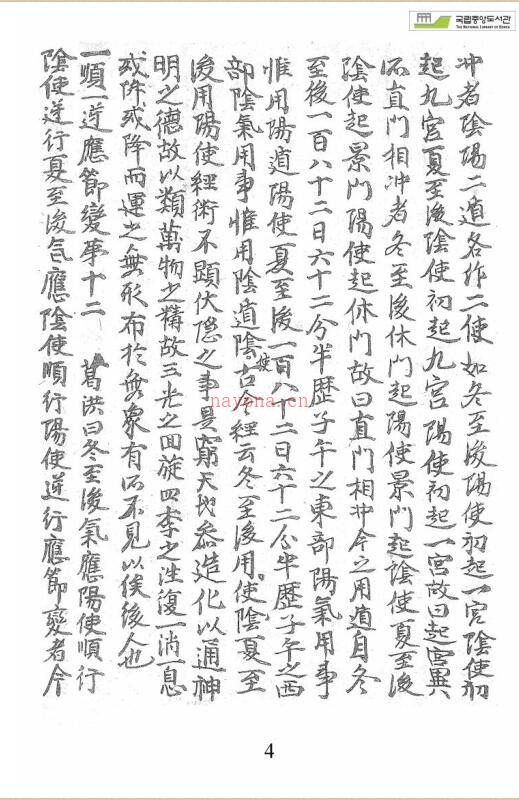 국립중앙도서관
THE NATIONAL LIBRARY OF KOREA
冲者陰陽二遁各作二使如冬至後陽使初起一宮陰使初
起九宮夏至後陰使初起九宮陽使初起一宮故曰起宮異
而直門相冲者冬至後休門起陽使景門起陰使夏至後
陰使起景門陽使起休門故曰直門相冲今之用遁自冬
至後一百八十二日六十二分半歷子午之東部陽氣用事
惟用陽遁陽使夏至後一百八十二日六十二分半歷子午之西
部陰氣用事惟用陰遁陰使古今經云冬至後用使陰夏至
後用陽使經術不顕伏隐之事是窮天地叅造化以通神
明之德故以類萬物之精故三光之回旋四季之往復一消一息
或升或降而運之無形布於無象有而不見以俟後人也
一順一逆應節變事十二 葛洪曰冬至後氣應陽使順行
陰使逆行夏至後氣應陰使順行陽使逆行應節變者今
nayona.cn
4